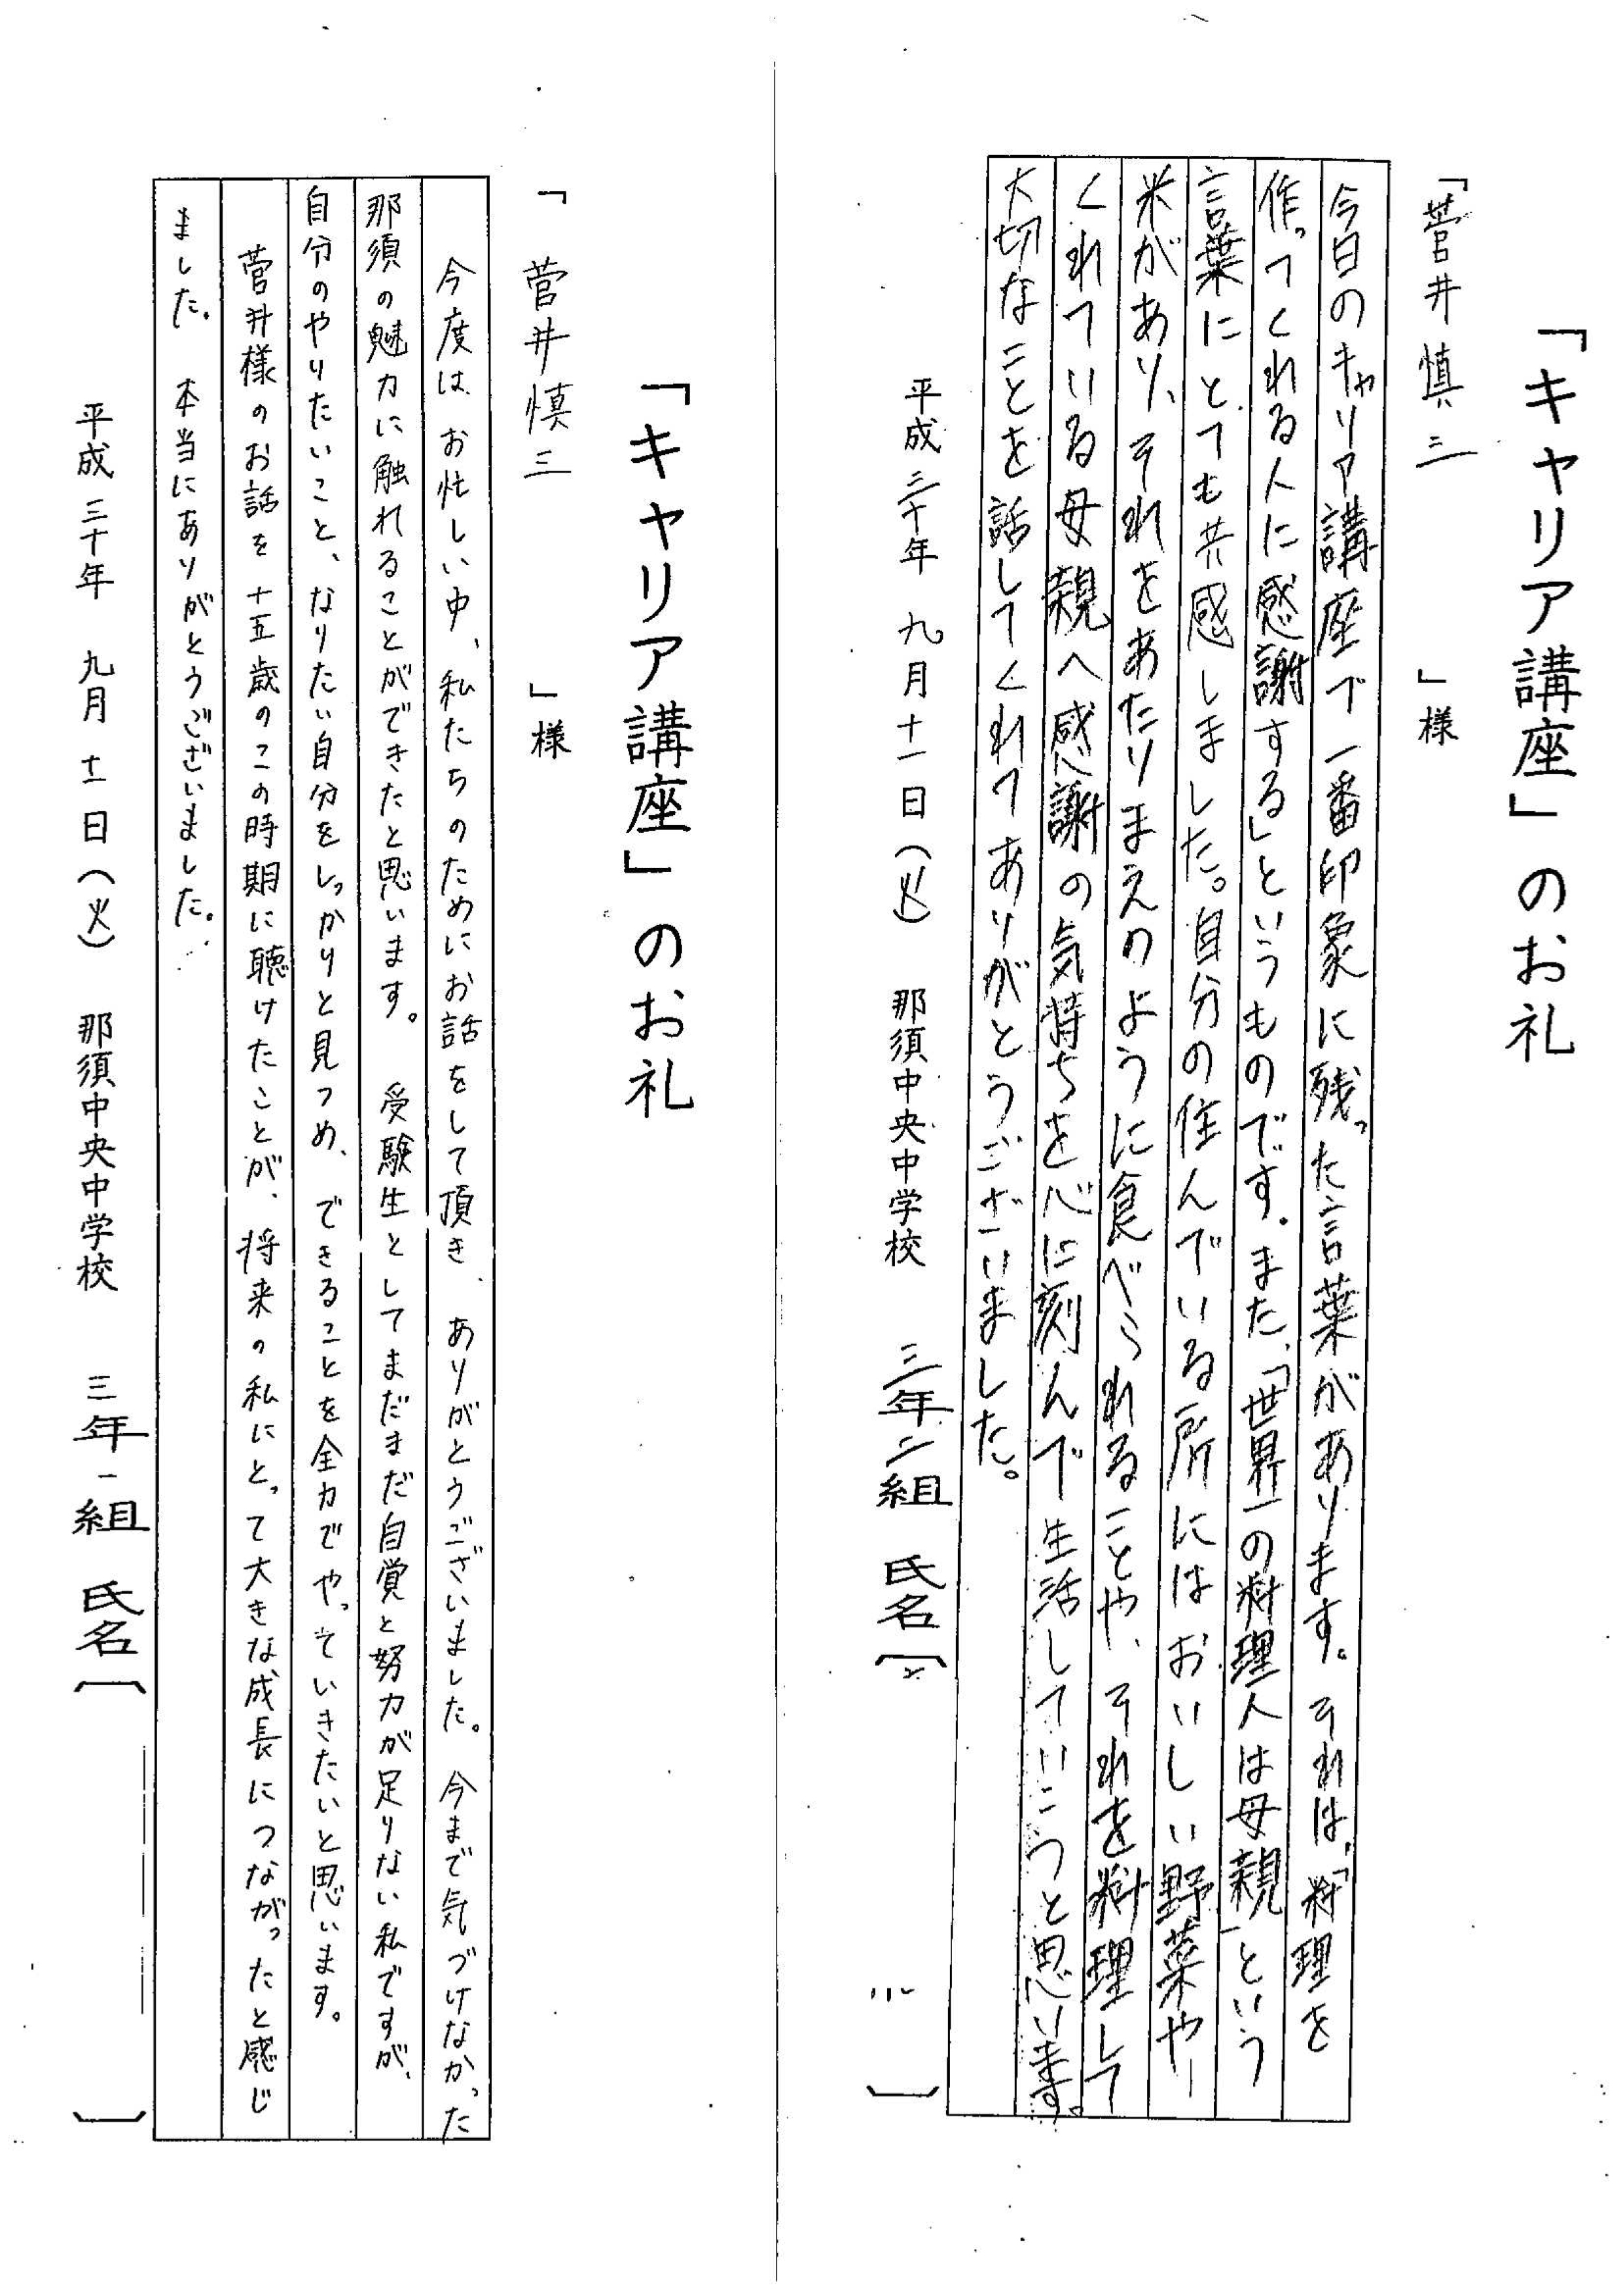 「キャリア講座」のお礼
「菅井慎三　」様
今日のキャリア講座で一番印象に残った言葉があります。それは、「料理を
作ってくれる人に感謝する」というものです。また、「世界一の料理人は母親」という
言葉にとても共感しました。自分の住んでいる所にはおいしい野菜や
米があり、それをあたりまえのように食べられることや、それを料理して
くれている母親へ感謝の気持ちを心に刻んで生活していこうと思います。
大切なことを話してくれてありがとうございました。
平成三十年　九月十一日（火）　那須中央中学校　三年二組　氏名〔　〕
「キャリア講座」のお礼
「菅井慎三　」様
今度は、お忙しい中、私たちのためにお話をして頂き、ありがとうございました。今まで気づけなかった
那須の魅力に触れることができたと思います。　受験生としてまだまだ自覚と努力が足りない私ですが、
自分のやりたいこと、なりたい自分をしっかりと見つめ、できることを全力でやっていきたいと思います。
菅井様のお話を十五歳のこの時期に聴けたことが、将来の私にとって大きな成長につながったと感じ
ました。　本当にありがとうございました。
平成三十年　九月十一日（火）　那須中央中学校　三年一組　氏名〔　〕